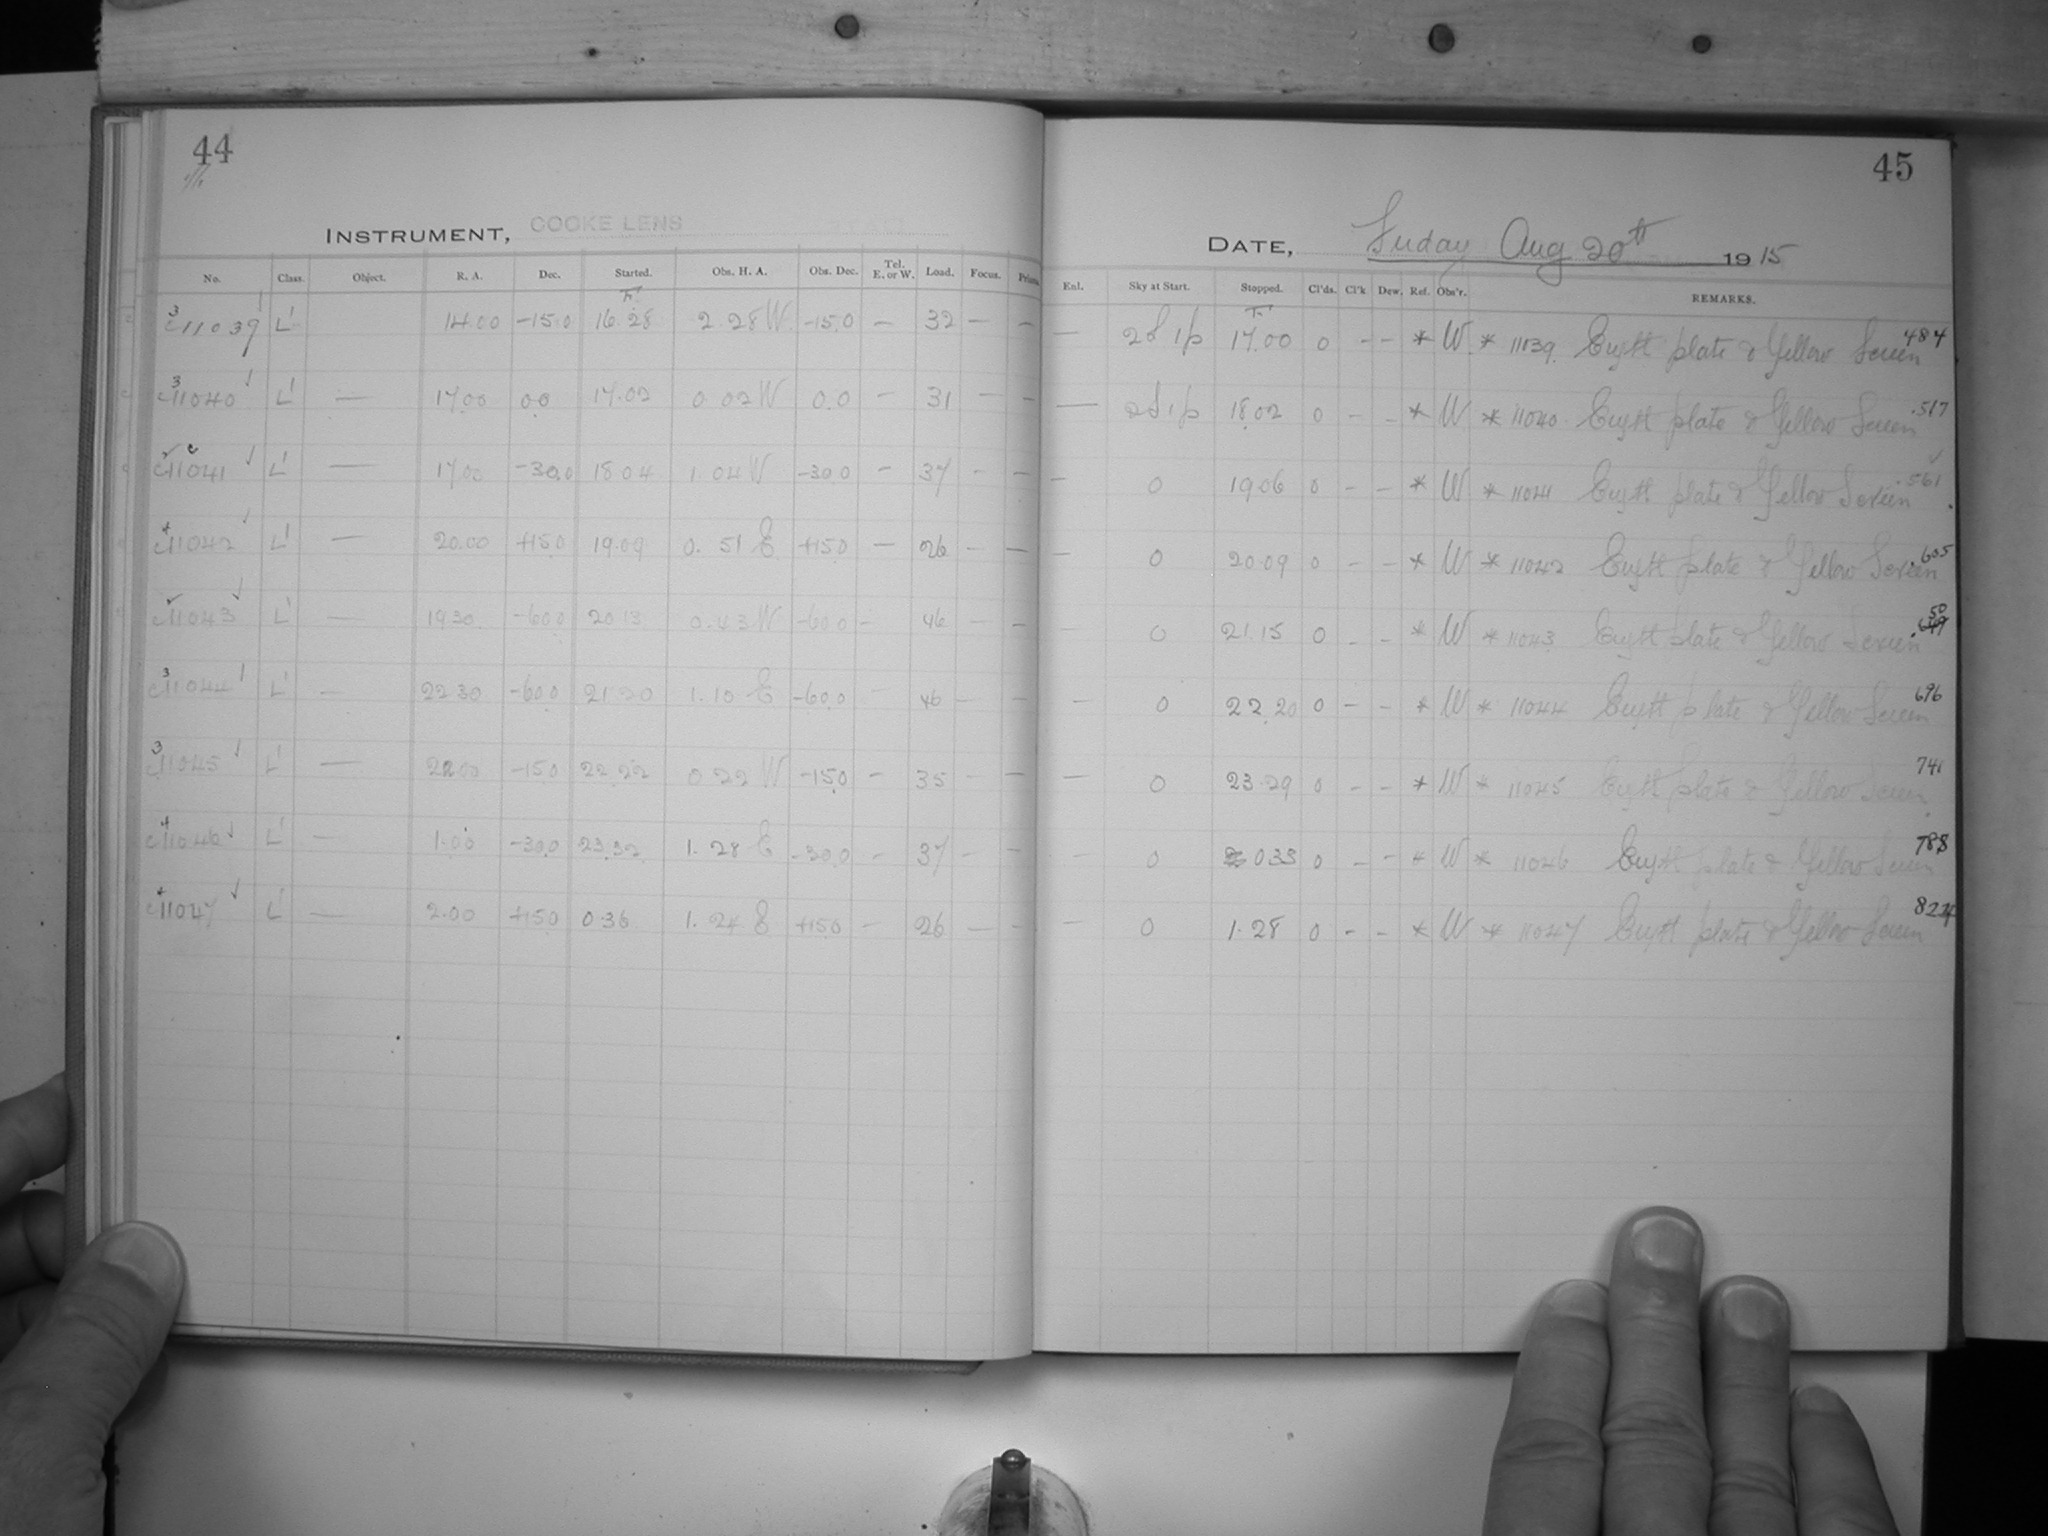 44
INSTRUMENT, COOKE LENS
No. Class. Object. R. A. Dec. Started. Obs. H. A. Obs. Dec. Tel. E. or W. Load. Focus. Prism.
3 c11039 L' 14.00 -15.0 16.28 2.28 W -15.0 — 32 — —
3 c11040 L' — 17.00 0.0 17.02 0.02 W 0.0 — 31 — —
c11041 L' — 17.00 -30.0 18.04 1.04 W -30.0 — 37 — —
4 c11042 L' — 20.00 +15.0 19.09 0.51 E +15.0 — 26 — —
c11043 L' — 19.30 -60.0 20.13 0.43 W -60.0 — 46 — —
3 c11044 L' — 22.30 -60.0 21.20 1.10 E -60.0 — 46 — —
3 c11045 L' — 22.00 -15.0 22.22 0.22 W -15.0 — 35 — —
4 c11046 L' — 1.00 -30.0 23.32 1.28 E -30.0 — 37 — —
c11047 L' — 2.00 +15.0 0.36 1.24 E +15.0 — 26 — —
45
DATE, Friday Aug 20th 1915
Enl. Sky at Start. Stopped. Cl'ds. Cl'k Dew. Ref. Obs'r. REMARKS.
— 17.00 0 — — * W * 11139 Eryth plate & Yellow Screen 484
— 18.02 0 — — * W * 11040 Eryth plate & Yellow Screen .517
— 0 19.06 0 — — * W * 11041 Eryth plate & Yellow Screen .561
— 0 20.09 0 — — * W * 11042 Eryth plate & Yellow Screen .605
— 0 21.15 0 — — * W * 11043 Eryth plate & Yellow Screen 50
— 0 22.20 0 — — * W * 11044 Eryth plate & Yellow Screen 696
— 0 23.29 0 — — * W * 11045 Eryth plate & Yellow Screen 741
— 0 0 33 0 — — * W * 11046 Eryth plate & Yellow Screen 788
— 0 1.28 0 — — * W * 11047 Eryth plate & Yellow Screen 824